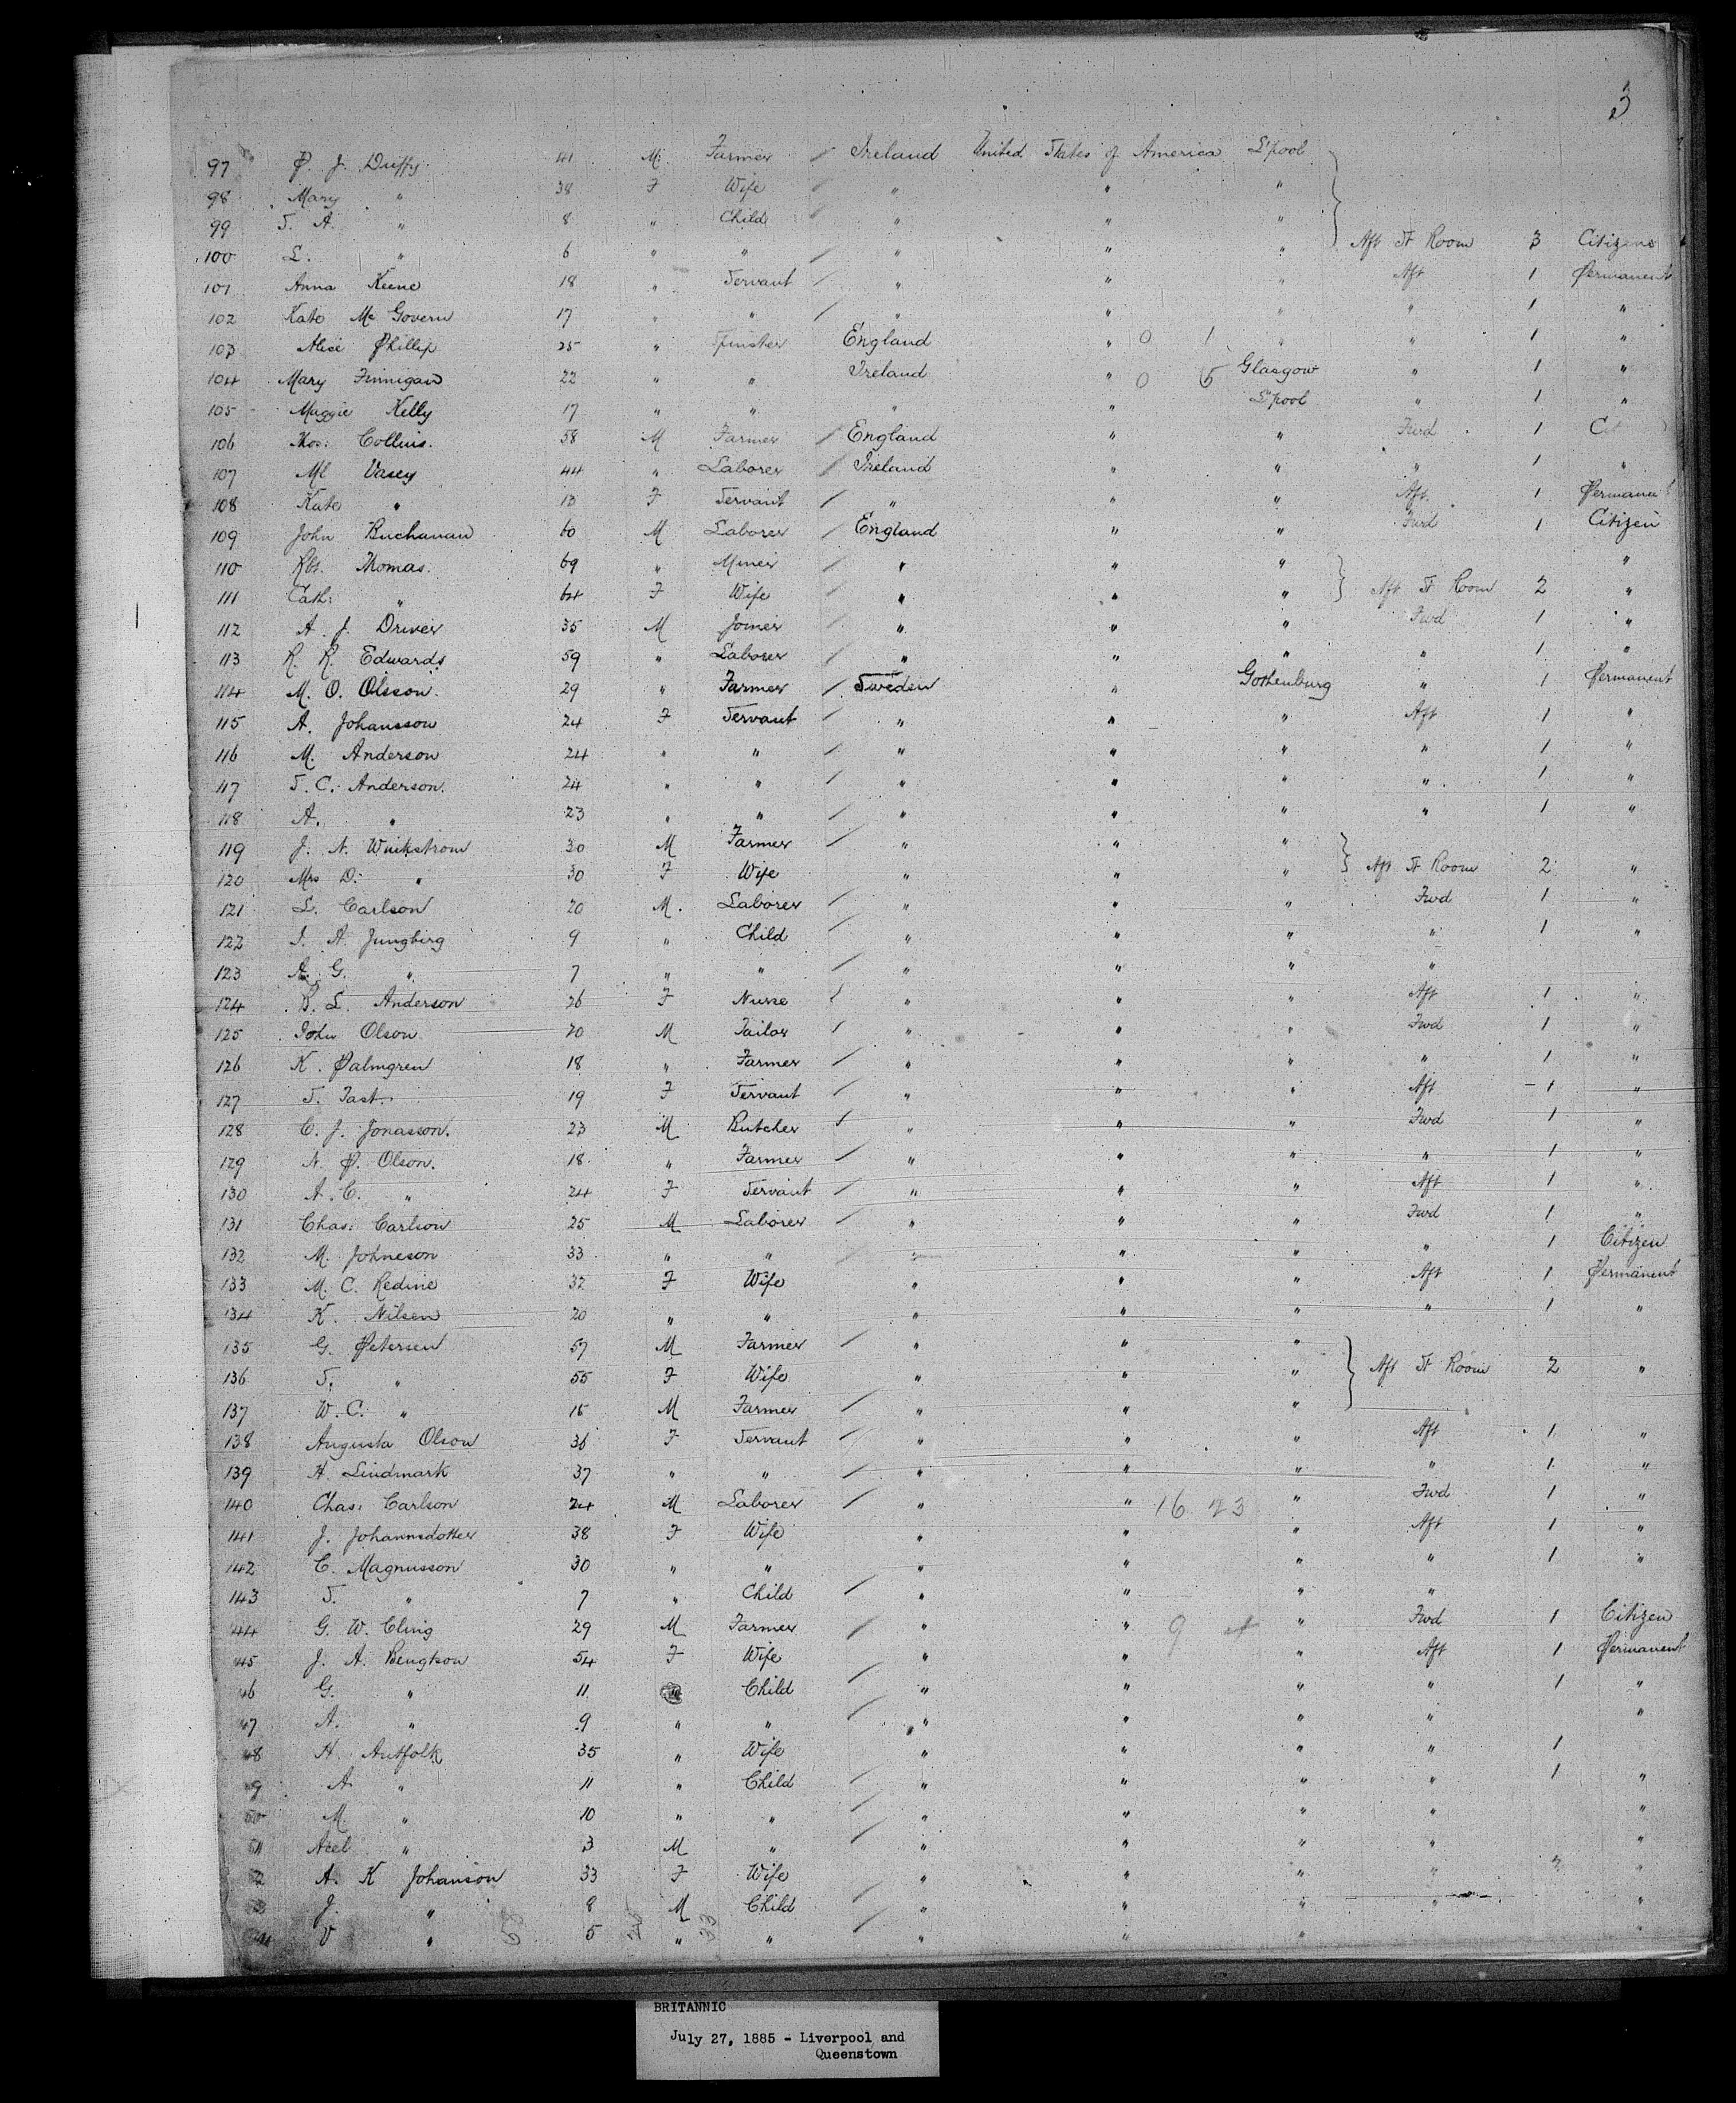 3
97 P. J. Duffy 41 M. Farmer / Ireland United States of America L'pool
98 Mary " 38 F Wife / " " "
99 S. A. " 8 " Child / " " "
100 L. " 6 " " / " " " Aft St Room 3 Citizens
101 Anna Keene 18 " Servant / " " " Aft 1 Permanent
102 Kate Mc Govern 17 " " / " " " " 1 "
103 Alice Phillip 25 " Spinster England " 0 1 " " 1 "
104 Mary Finnigan 22 " " Ireland " 0 5 Glasgow " 1 "
105 Maggie Kelly 17 " " " " L'pool " 1 "
106 Thos: Collins. 58 M Farmer / England " " Fwd 1
107 Ml Vasey 44 " Laborer / Ireland " " " 1 "
108 Kate " 13 F Servant / " " " Aft. 1 Permanent
109 John Buchanan 60 M Laborer / England " " Fwd 1 Citizen
110 Rbt. Thomas. 69 " Miner / " " " "
111 Cath: " 64 F Wife / " " " Aft St Room 2 "
112 A. J. Driver 35 M Joiner / " " " Fwd 1 "
113 R. R. Edwards 59 " Laborer / " " " " 1 "
114 M. O. Olsson. 29 " Farmer / Sweden " Gothenburg " 1 Permanent
115 A. Johansson 24 F Servant / " " " Aft 1 "
116 M. Anderson 24 " " / " " " " 1 "
117 S. C. Anderson. 24 " " / " " " " 1 "
118 A. " 23 " " / " " " " 1 "
119 J. N. Winkstrom 30 M Farmer / " " "
120 Mrs D: " 30 F Wife " " " Aft St Room 2 "
121 L. Carlson 20 M. Laborer / " " " Fwd 1 "
122 J. A. Jungbirg 9 " Child / " " " " 1 "
123 A. G. " 7 " " / " " " "
124 B. L. Anderson 26 F Nurse / " " " Aft 1 "
125 John Olson 20 M Tailor / " " " Fwd 1 "
126 K. Palmgren 18 " Farmer / " " " " 1 "
127 S. Tast. 19 F Servant / " " " Aft 1 "
128 C. J. Jonasson. 23 M Butcher / " " " Fwd 1 "
129 N. P. Olson. 18 " Farmer / " " " " 1 "
130 A. C. " 24 F Servant / " " " Aft 1 "
131 Chas: Carlson 25 M Laborer / " " " Fwd 1 "
132 M. Johneson 33 " " / " " " " 1 Citizen
133 M. C. Redine 32 F Wife " " " Aft 1 Permanent
134 K. Nilsen 20 " " " " " " 1 "
135 G. Petersen 57 M Farmer / " " "
136 S. " 55 F Wife " " " Aft St Room 2 "
137 W. C. " 15 M Farmer / " " "
138 Augusta Olson 36 F Servant / " " " Aft 1 "
139 H. Lindmark 37 " " / " " " " 1 "
140 Chas: Carlson 24 M Laborer / " " 16 23 " Fwd 1 "
141 J. Johannsdotter 38 F Wife " " Aft 1 "
142 C. Magnusson 30 " " " " " " 1 "
143 S. " 7 " Child / " " " "
44 G. W. Cling 29 M Farmer / " " 9 " Fwd 1 Citizen
45 J. A. Bengtson 54 F Wife / " " " Aft 1 Permanent
46 G. " 11 Child / " " " " 1 "
47 A. " 9 " " / " " " " "
48 H. Autfolk 35 " Wife " " " " 1
9 A. " 11 " Child / " " " " 1 "
50 M. " 10 " " / " " " " "
Acel " 3 M " / " " " " "
2 A. K Johanson 33 F Wife " " " " "
3 J. " 8 M Child / " " " " "
V " 5 " " / " " " "
BRITANNIC
July 27, 1885 - Liverpool and
Queenstown